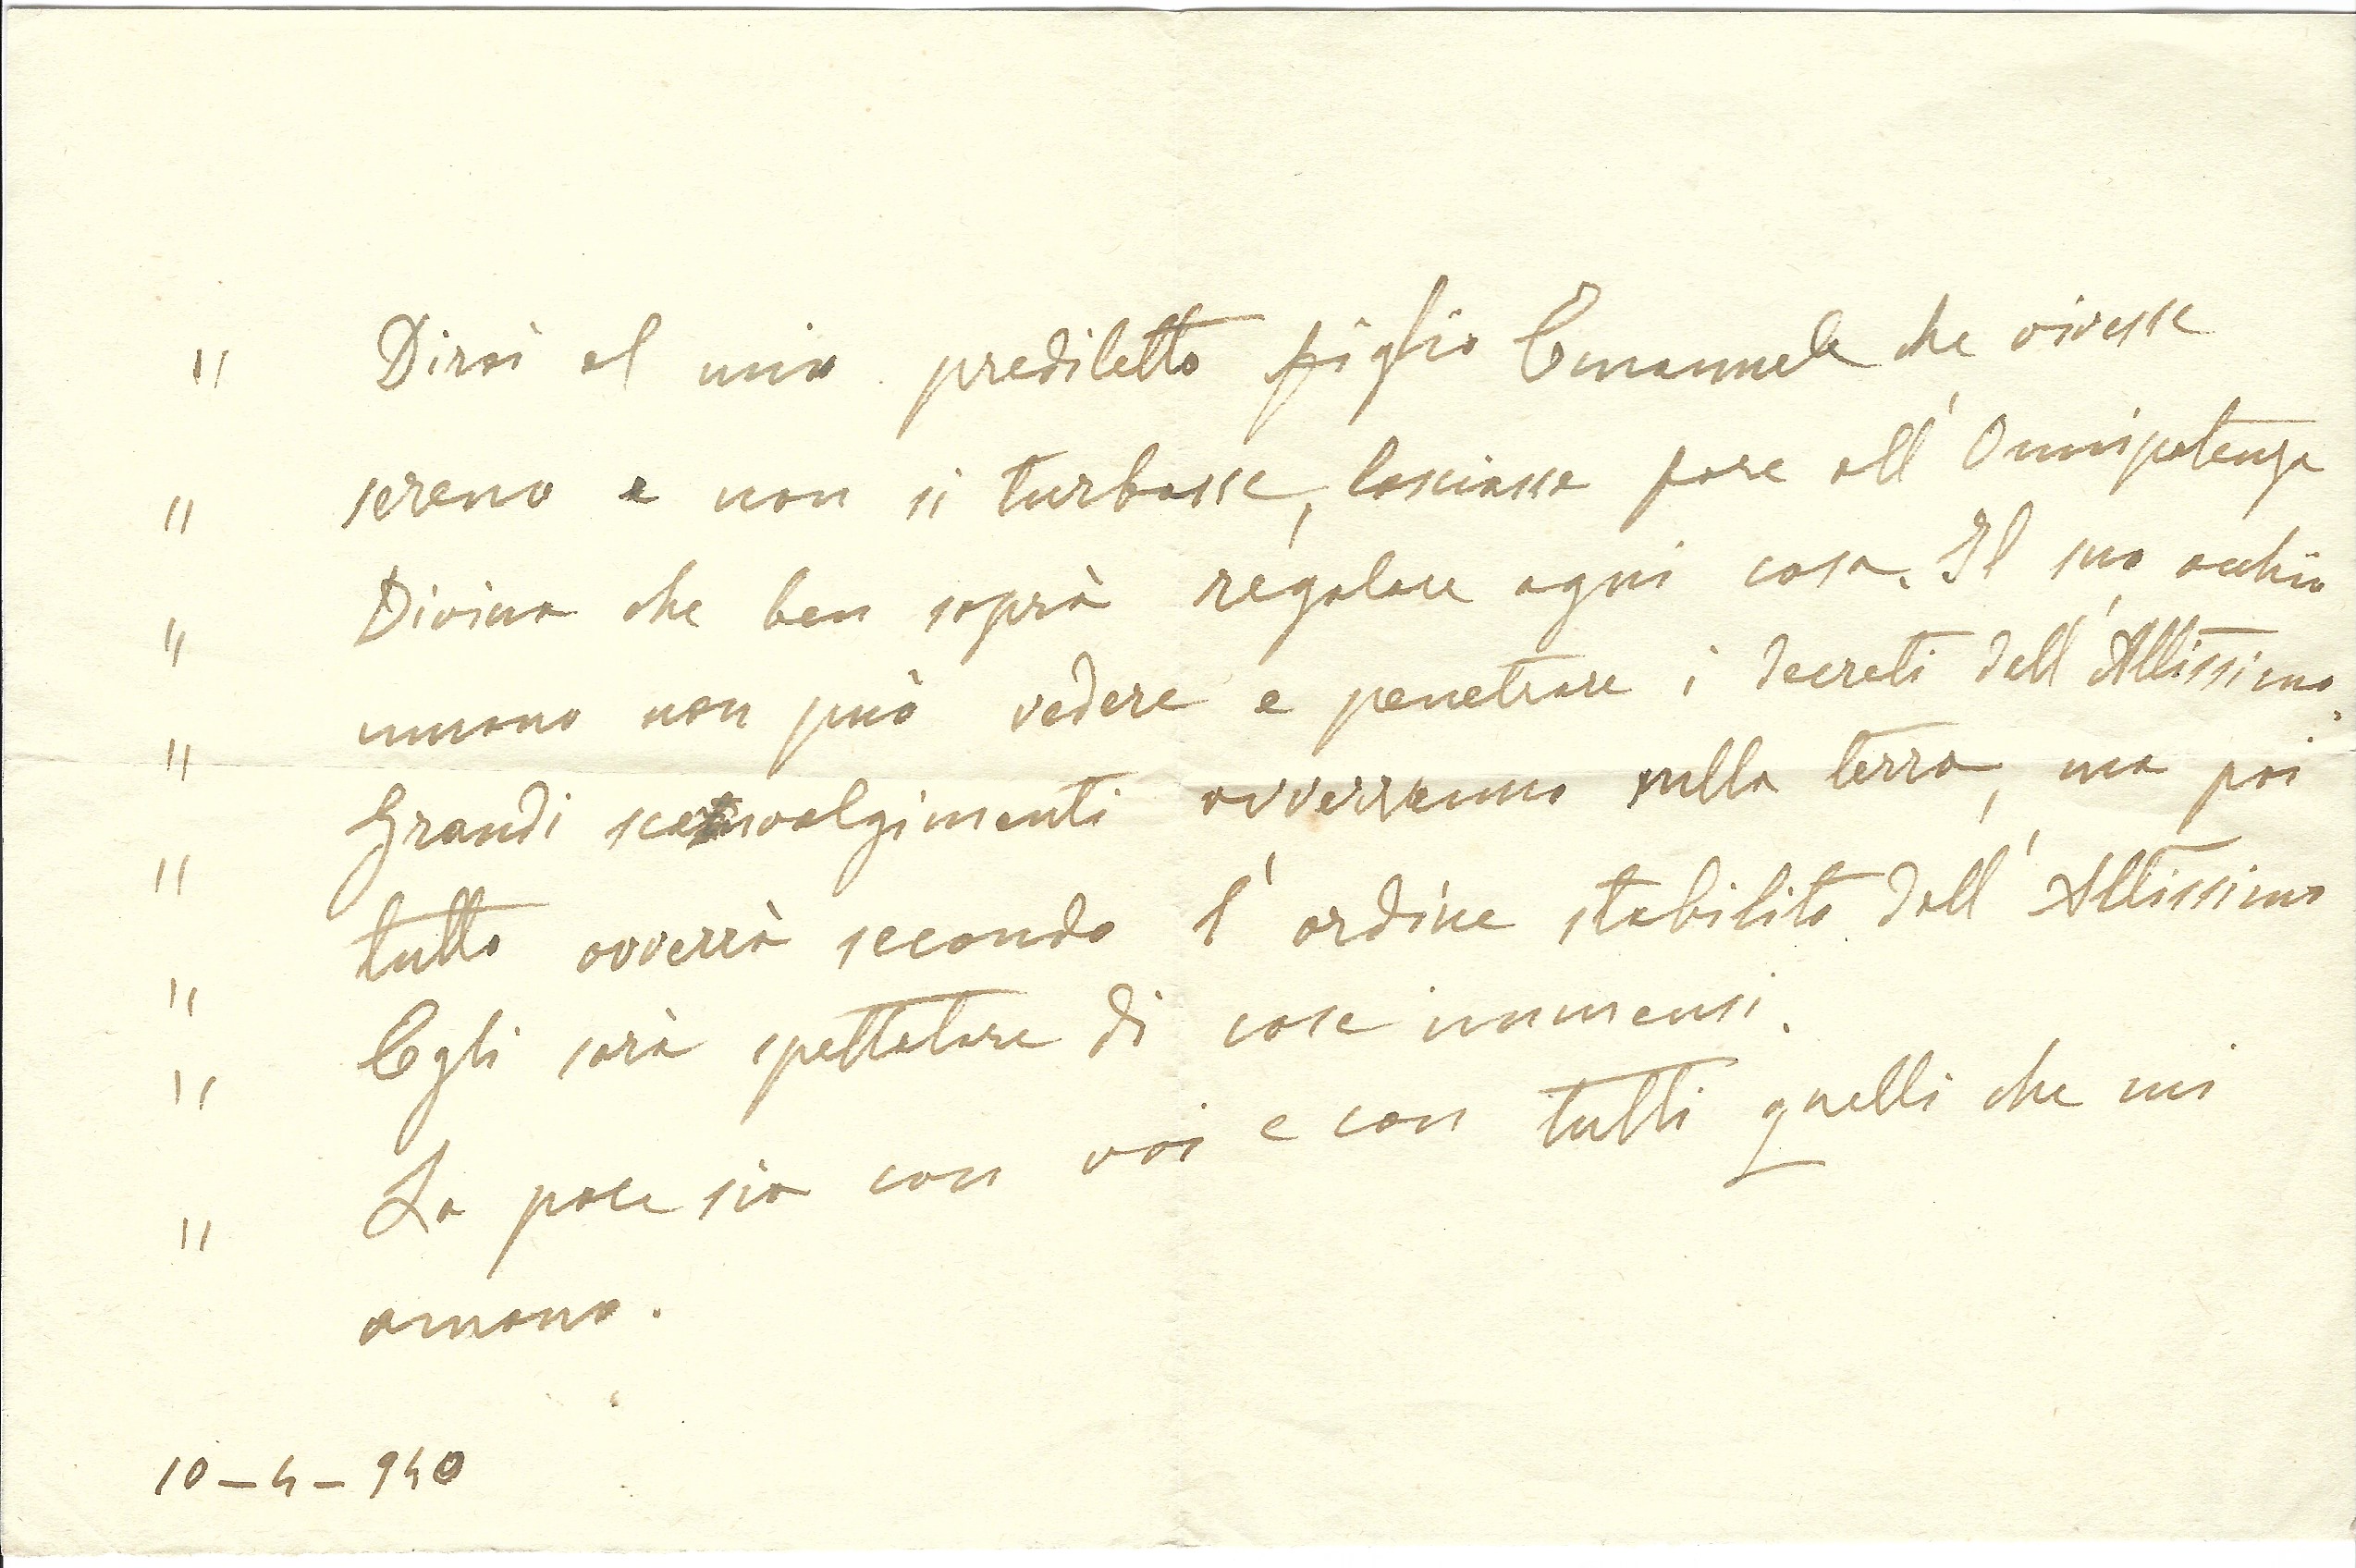 " Dirai al mio prediletto figlio Emanuele che vivesse
" sereno e non si turbasse, lasciasse fare all'Onnipotenza
" Divina che ben saprà regolare ogni cosa. Il suo occhio
" umano non può vedere e penetrare i decreti dell'Altissimo.
" Grandi sconvolgimenti avverranno sulla terra, ma poi
" tutto avverrà secondo l'ordine stabilito dall'Altissimo
" Egli sarà spettatore di cose immensi.
" La pace sia con voi e con tutti quelli che mi
amano.
10-4-940